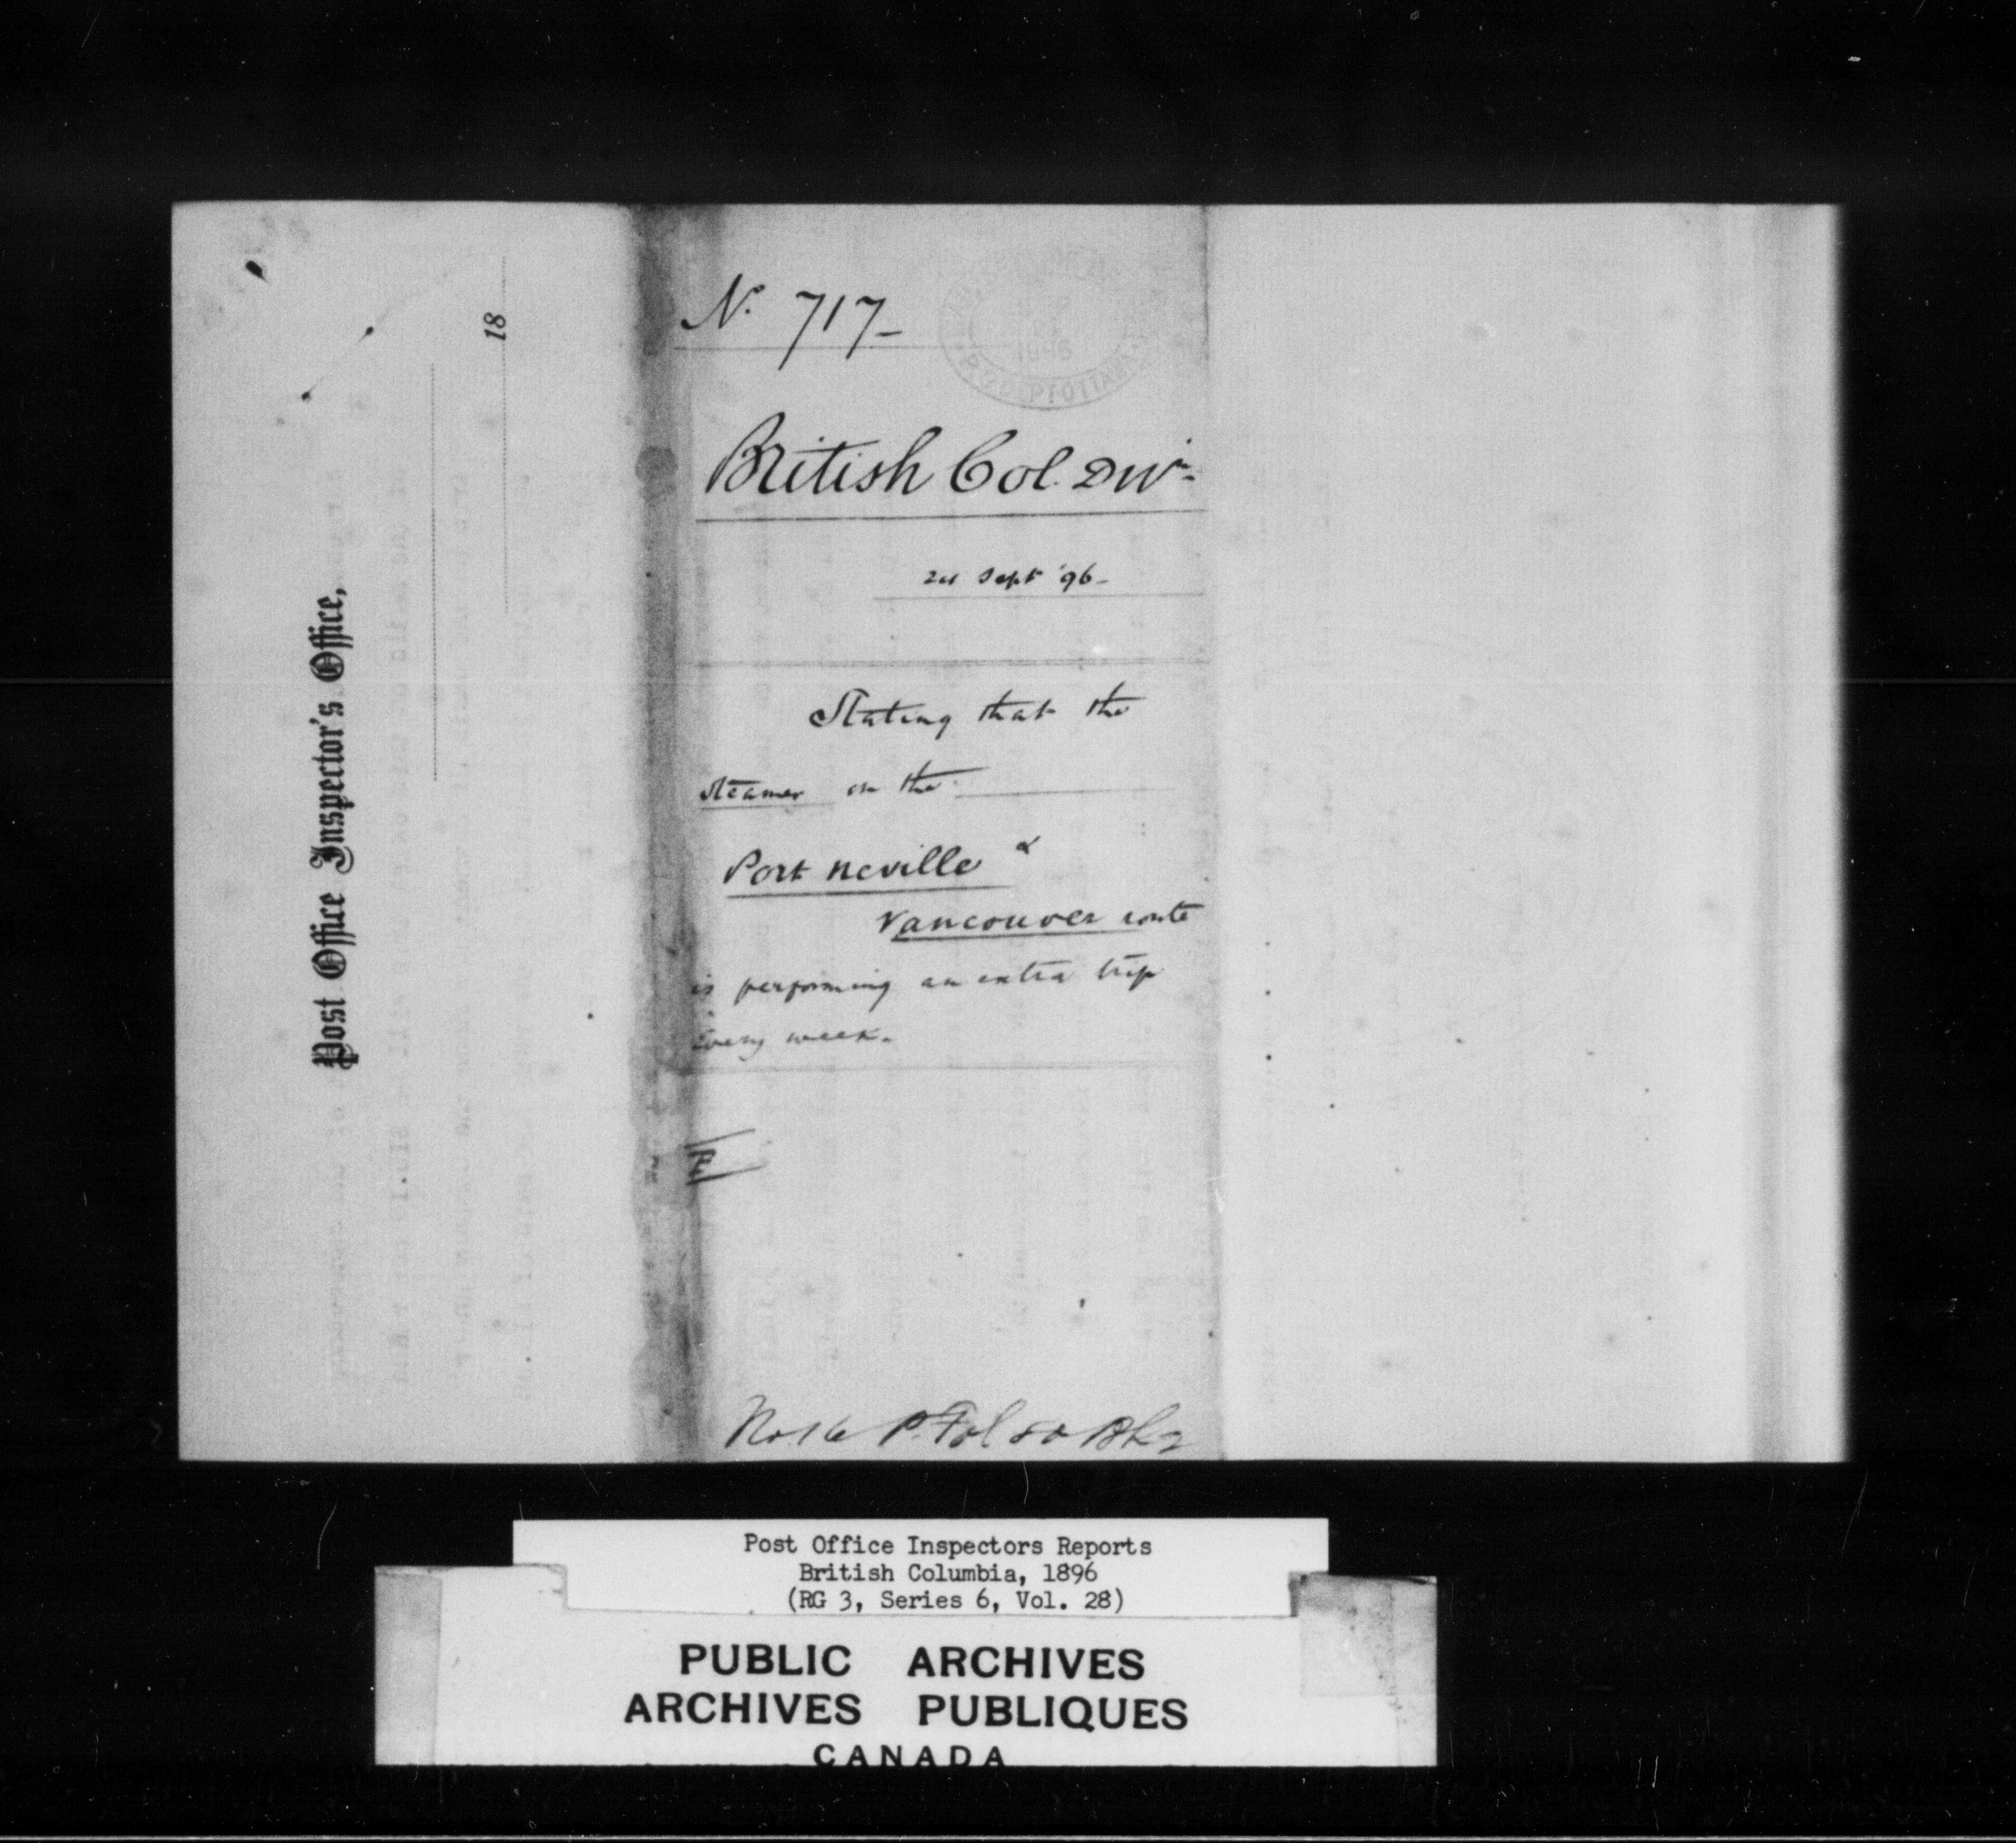 Post Office Inspector's Office,
18
No. 717
British Col. Divn.
Sept '96
Stating that the
steamer on the
Port Neville &
Vancouver route
is performing an extra trip
every week.
No 16 P. Fol 80 Bk 2
Post Office Inspectors Reports
British Columbia, 1896
(RG 3, Series 6, Vol. 28)
PUBLIC ARCHIVES
ARCHIVES PUBLIQUES
CANADA